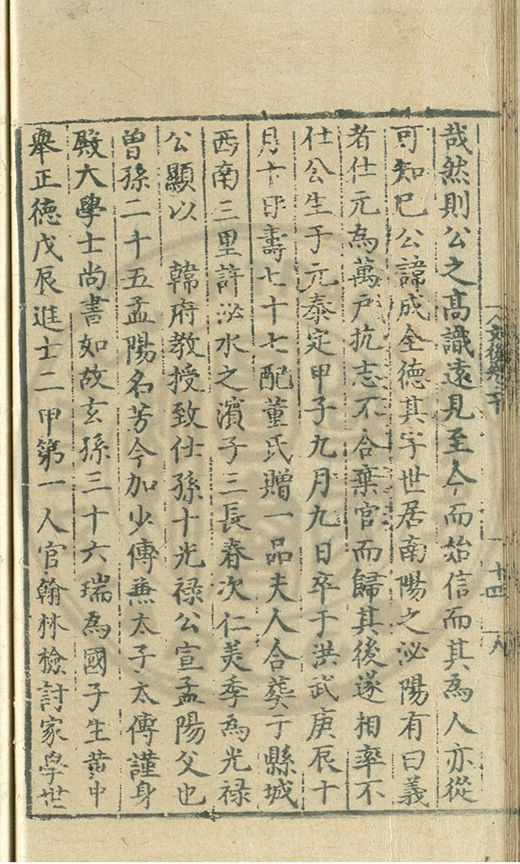 哉然則公之高識遠見至今而始信而其為人亦從
可知已公諱成全德其字世居南陽之泌陽有曰義
者仕元為萬戶抗志不合棄官而歸其後遂相率不
仕公生于元泰定甲子九月九日卒于洪武庚辰十
月十日壽七十七配董氏贈一品夫人合葬于縣城
西南三里許泌水之濱子三長春次仁美季為光祿
公顯以　韓府教授致仕孫十光祿公宣孟陽父也
曾孫二十五孟陽名芳今加少傅兼太子太傅謹身
殿大學士尚書如故玄孫三十六瑞為國子生黃中
舉正德戊辰進士二甲第一人官翰林檢討家學世